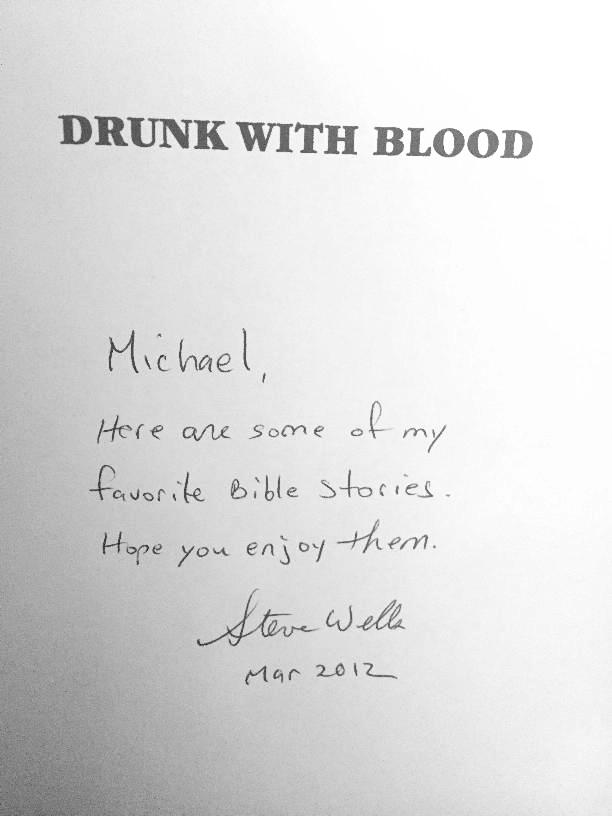 DRUNK WITH BLOOD
Michael,
Here are some of my
favorite Bible stories.
Hope you enjoy them.
Steve Wells
Mar 2012